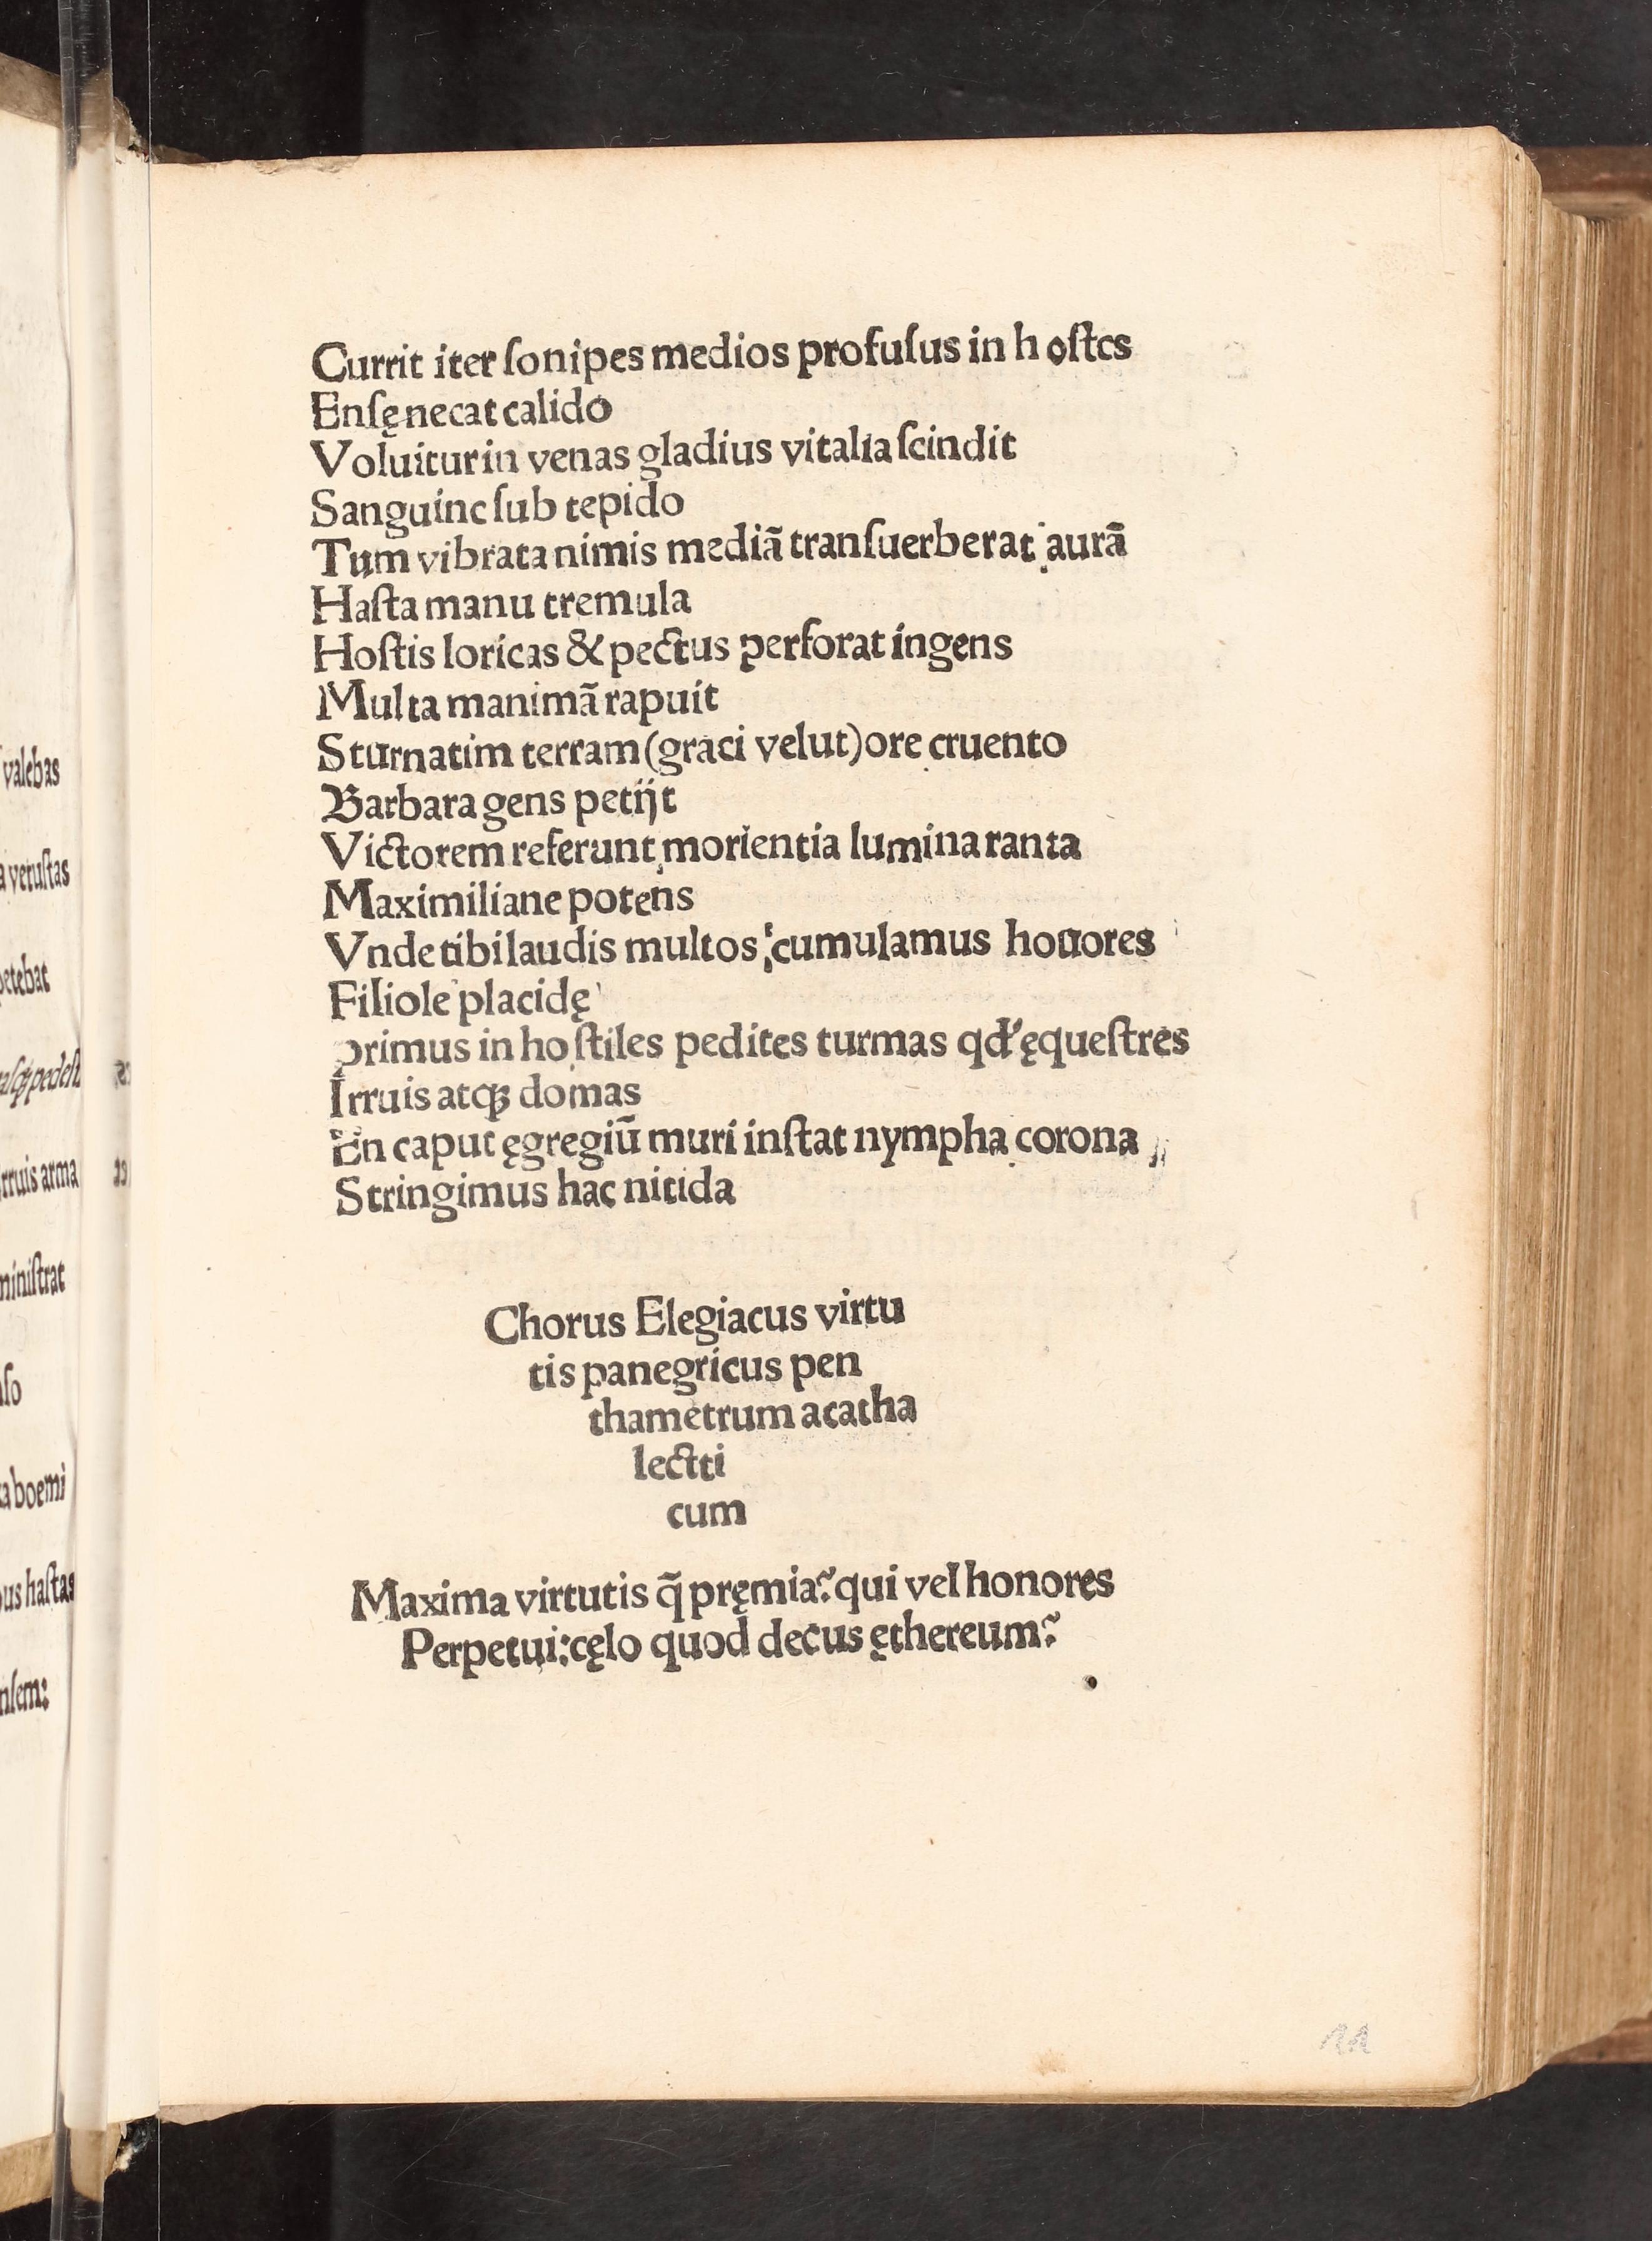 Currit iter ſonipes medios profuſus in h oſtes
Enſę necat calido
Voluitur in venas gladius vitalia ſcindit
Sanguine ſub tepido
Tum vibrata nimis mediã tranſuerberat aurã
Haſta manu tremula
Hoſtis loricas & pectus perforat ingens
Multa manimã rapuit
Sturnatim terram (graci velut) ore cruento
Barbara gens petijt
Victorem referunt morientia lumina ranta
Maximiliane potens
Vnde tibi laudis multos cumulamus houores
Filiole placidę
primus in hoſtiles pedites turmas qd' ęqueſtres
Irruis atqꝫ domas
En caput ęgregiũ muri inſtat nympha corona
Stringimus hac nitida
Chorus Elegiacus virtu
tis panegricus pen
thametrum acatha
lectti
cum
Maxima virtutis q̃ pręmia? qui vel honores
Perpetui: cęlo quod decus ęthereum?
11
valebas
a vetuſtas
petebat
rruis arma
miniſtrat
a boemi
us haſtas
nſem: